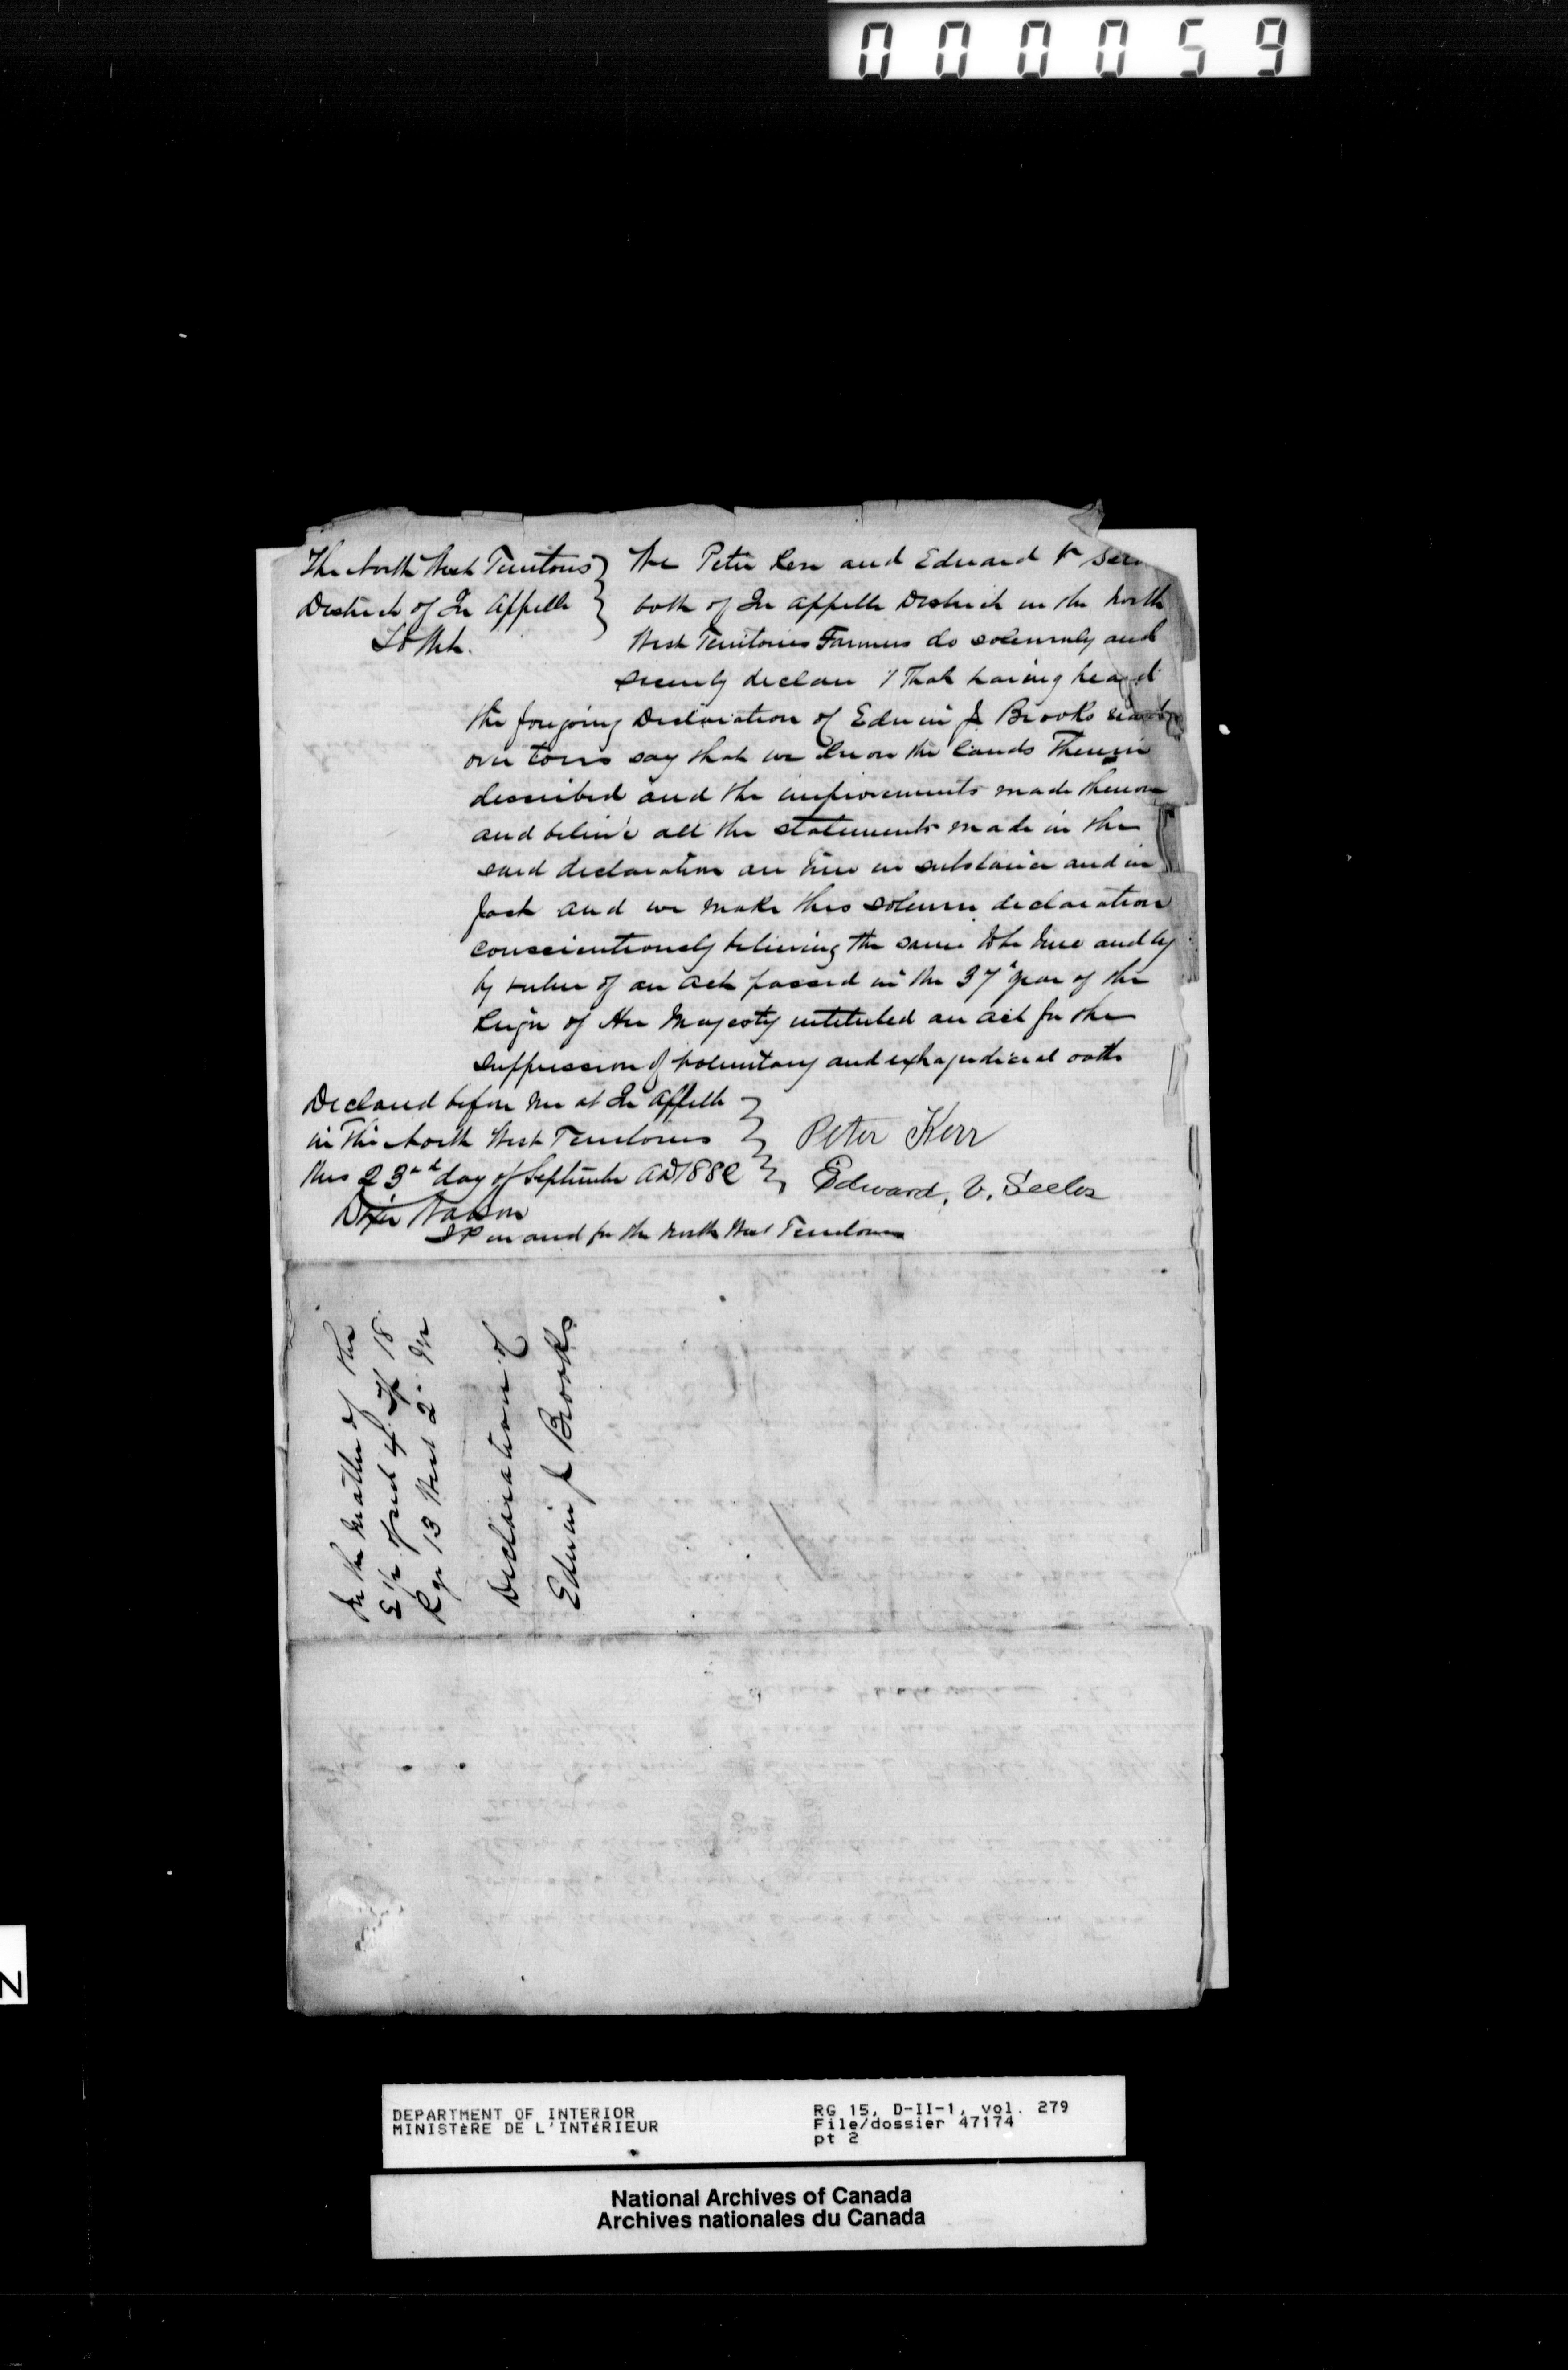 000059
The North West Territories } We Peter Kerr and Edward V
District of Qu Appelle } both of Qu Appelle District in the North
To Wit. West Territories Farmers do solemnly and
declare 1 That having heard
the foregoing Declaration of Edwin J Brooks read
over to us say that we know the lands Therein
described and the improvements made thereon
and believe all the statements made in the
said declaration are true in substance and in
fact and we make this solemn declaration
conscientiously believing the same to be true and by
by virtue of an Act passed in the 37th year of the
Reign of Her Majesty intituled an act for the
suppression of voluntary and extrajudicial oaths
Declared before me at Qu Appelle
in The North West Territories } Peter Kerr
this 23rd day of September AD 1882 } Edward. V. Seeler
JP in and for the North West Territories
In the matter of the
E 1/2 of sect 4 Tp 18
Rge 13 West 2nd
Declaration of
Edwin J Brooks
N
DEPARTMENT OF INTERIOR
MINISTÈRE DE L'INTÉRIEUR
RG 15, D-II-1, vol. 279
File/dossier 47174
pt 2
National Archives of Canada
Archives nationales du Canada